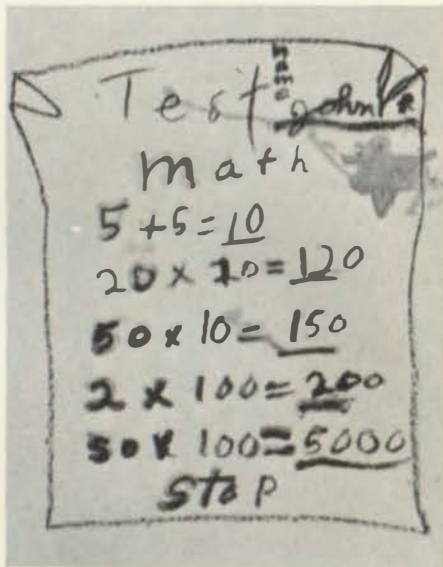 Test name John
Math
5+5=10
20x10=120
50x10=150
2x100=200
50x100=5000
Stop